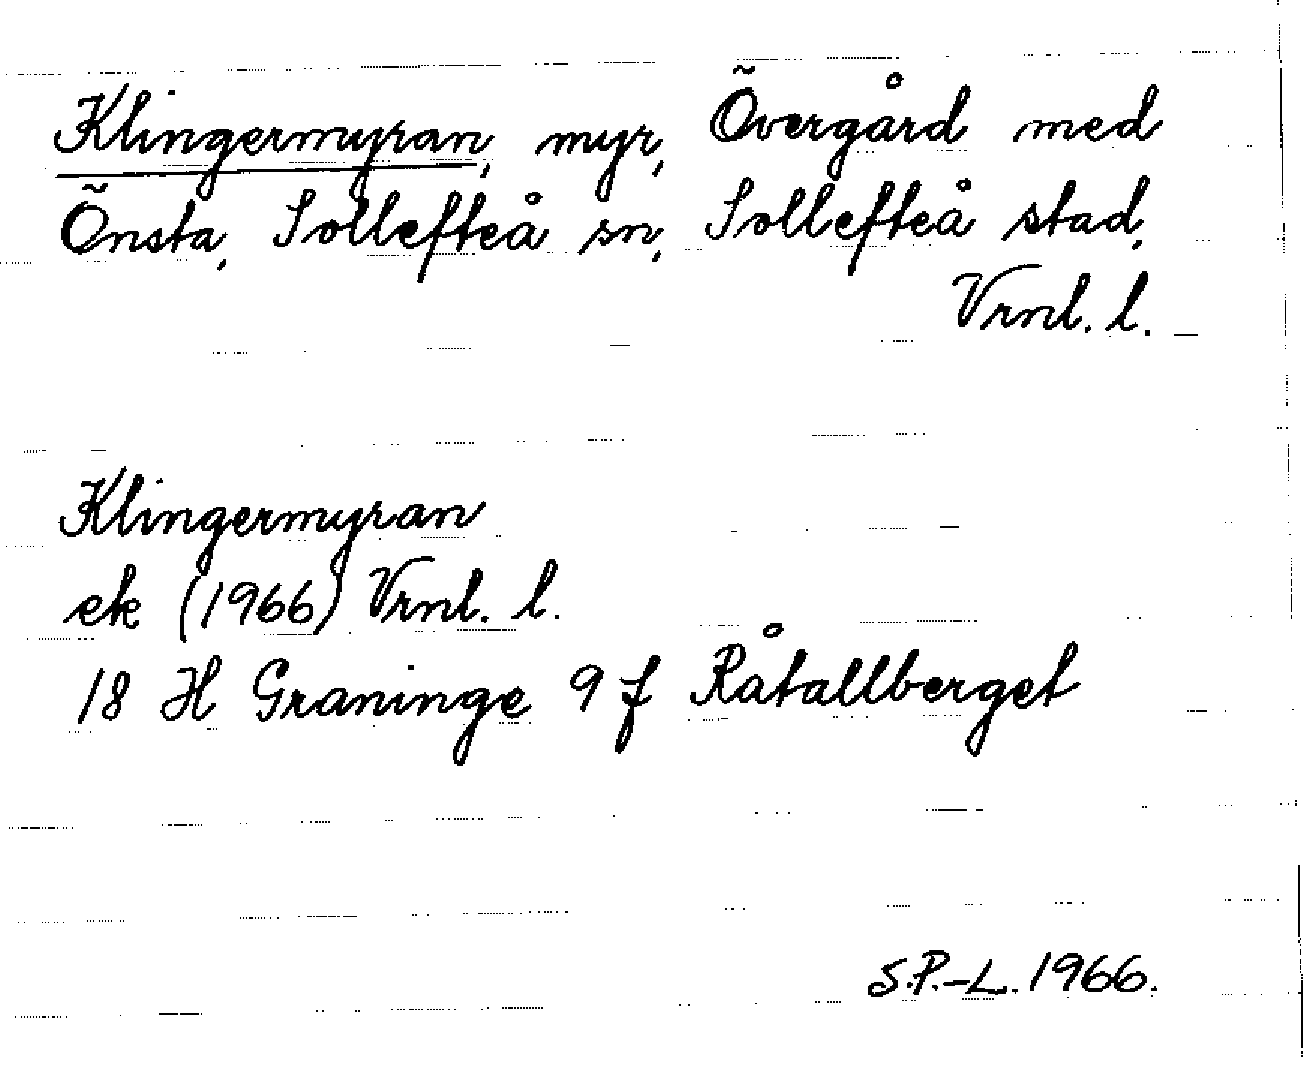 Klingermyran, myr, Övergård med
Önsta, Sollefteå sn, Sollefteå stad,
Vrnl. l.
Klingermyran
ek (1966) Vrnl. l.
18 H Graninge 9 f Råtallberget
S.P.-L. 1966.